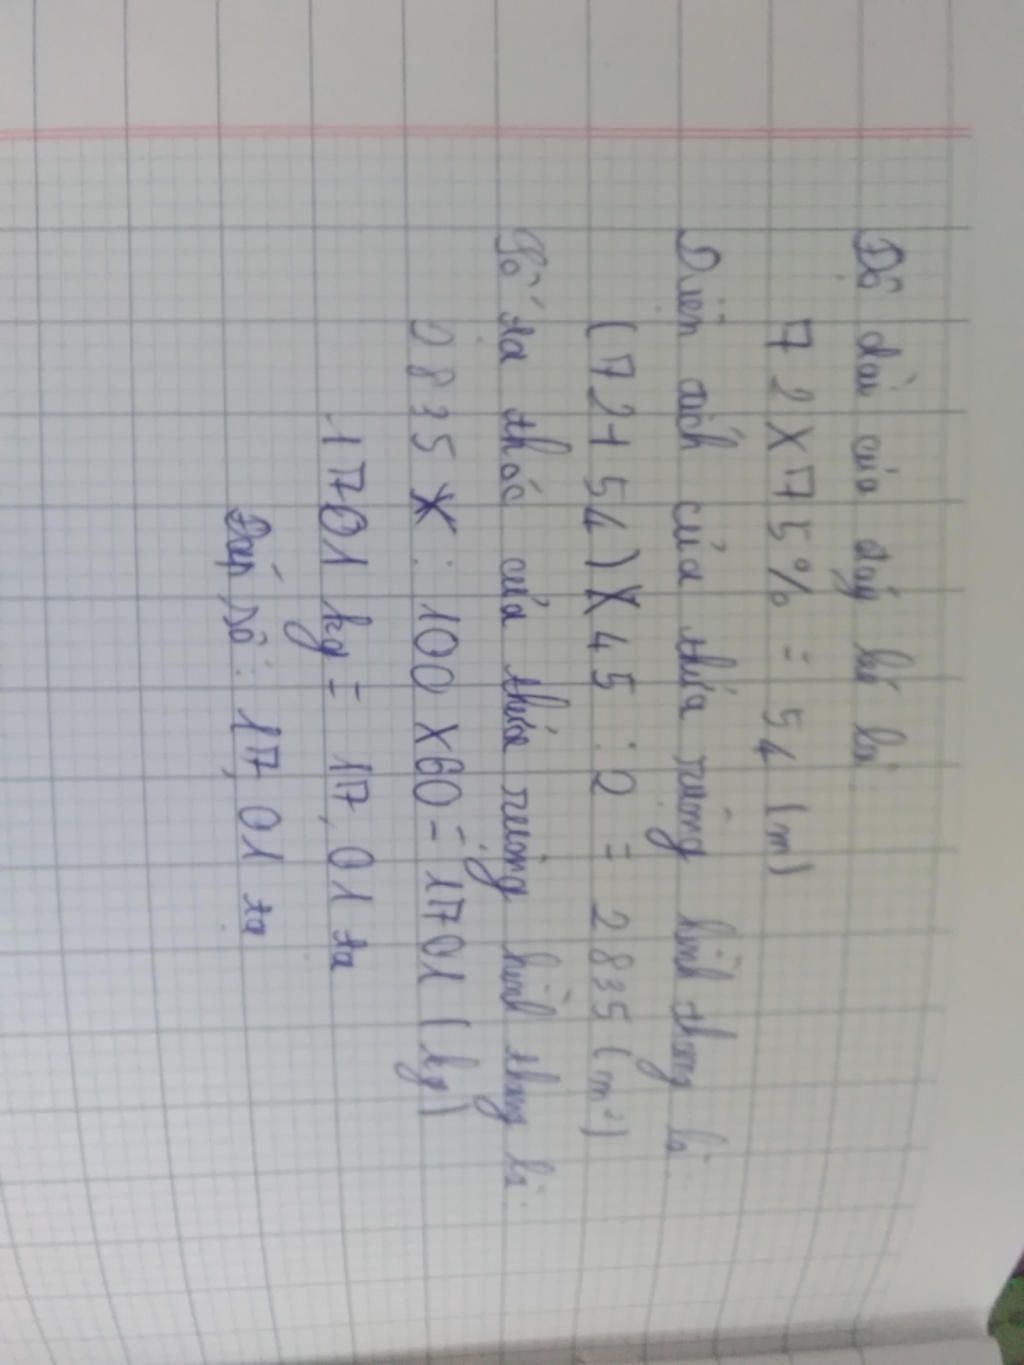 Độ dài của đáy bé là:
72 X 75% = 54 (m)
Diện tích của thửa ruộng hình thang là:
(72 + 54) X 45 : 2 = 2835 (m²)
Số tạ thóc của thửa ruộng hình thang là:
2835 : 100 X 60 = 1701 (kg)
1701 kg = 17,01 tạ
Đáp số: 17,01 tạ